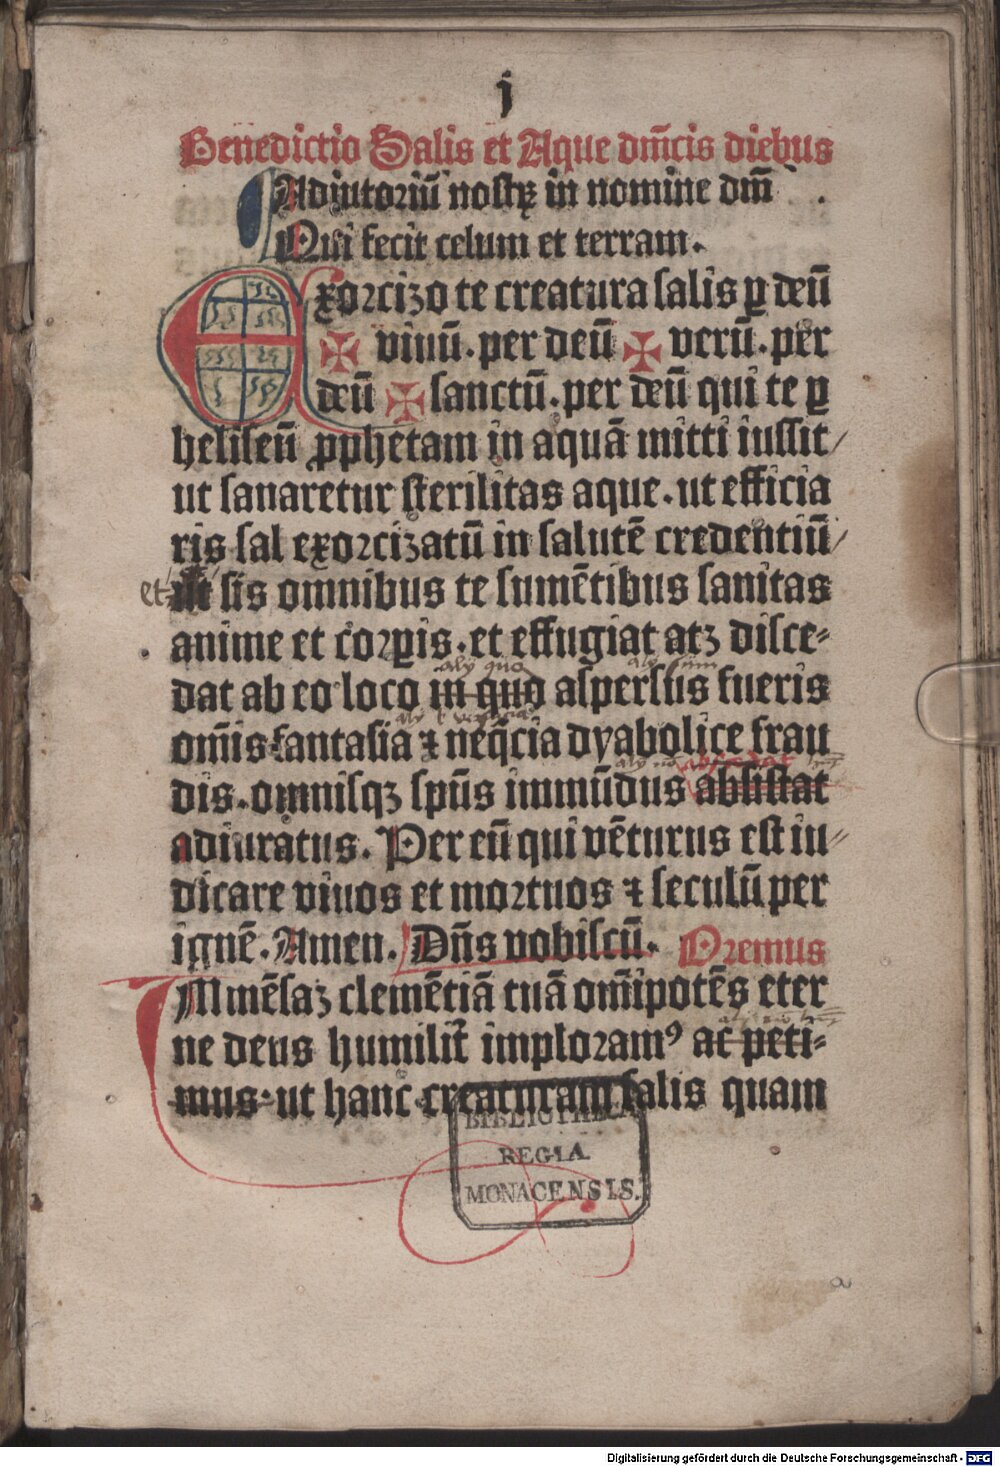 j
Benedictio Salis et Aque dn̄icis diebus
Adiutoriū nostꝝ in nomine dn̄i
Qui fecit celum et terram.
Exorcizo te creatura salis ꝑ deū
✠ viuū. per deū ✠ verū. per
deū ✠ sanctū. per deū qui te ꝑ
heliseū ꝓphetam in aquā mitti iussit/
ut sanaretur sterilitas aque. ut efficia
ris sal exorcizatū in salutē credentiū/
et ut sis omnibus te sumētibus sanitas
anime et corꝑis. et effugiat atꝫ disce-
aly quo
dat ab eo loco in quo aspersus fueris
om̄is fantasia ⁊ neq̄cia dyabolice frau
dis. omnisqꝫ spūs immūdus absistat
adiuratus. Per eū qui vēturus est iu-
dicare viuos et mortuos ⁊ seculū per
ignē. Amen. Dn̄s vobiscū. Oremus
Immēsaꝫ clemētiā tuā om̄ipotēs eter
ne deus humilit̄ imploramꝰ ac peti-
mus. ut hanc creaturam salis quam
BIBLIOTHECA
REGIA
MONACENSIS.
a
Digitalisierung gefördert durch die Deutsche Forschungsgemeinschaft - DFG